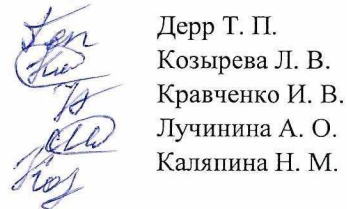 Дерр Т. П.
Козырева Л. В.
Кравченко И. В.
Лучинина А. О.
Каляпина Н. М.